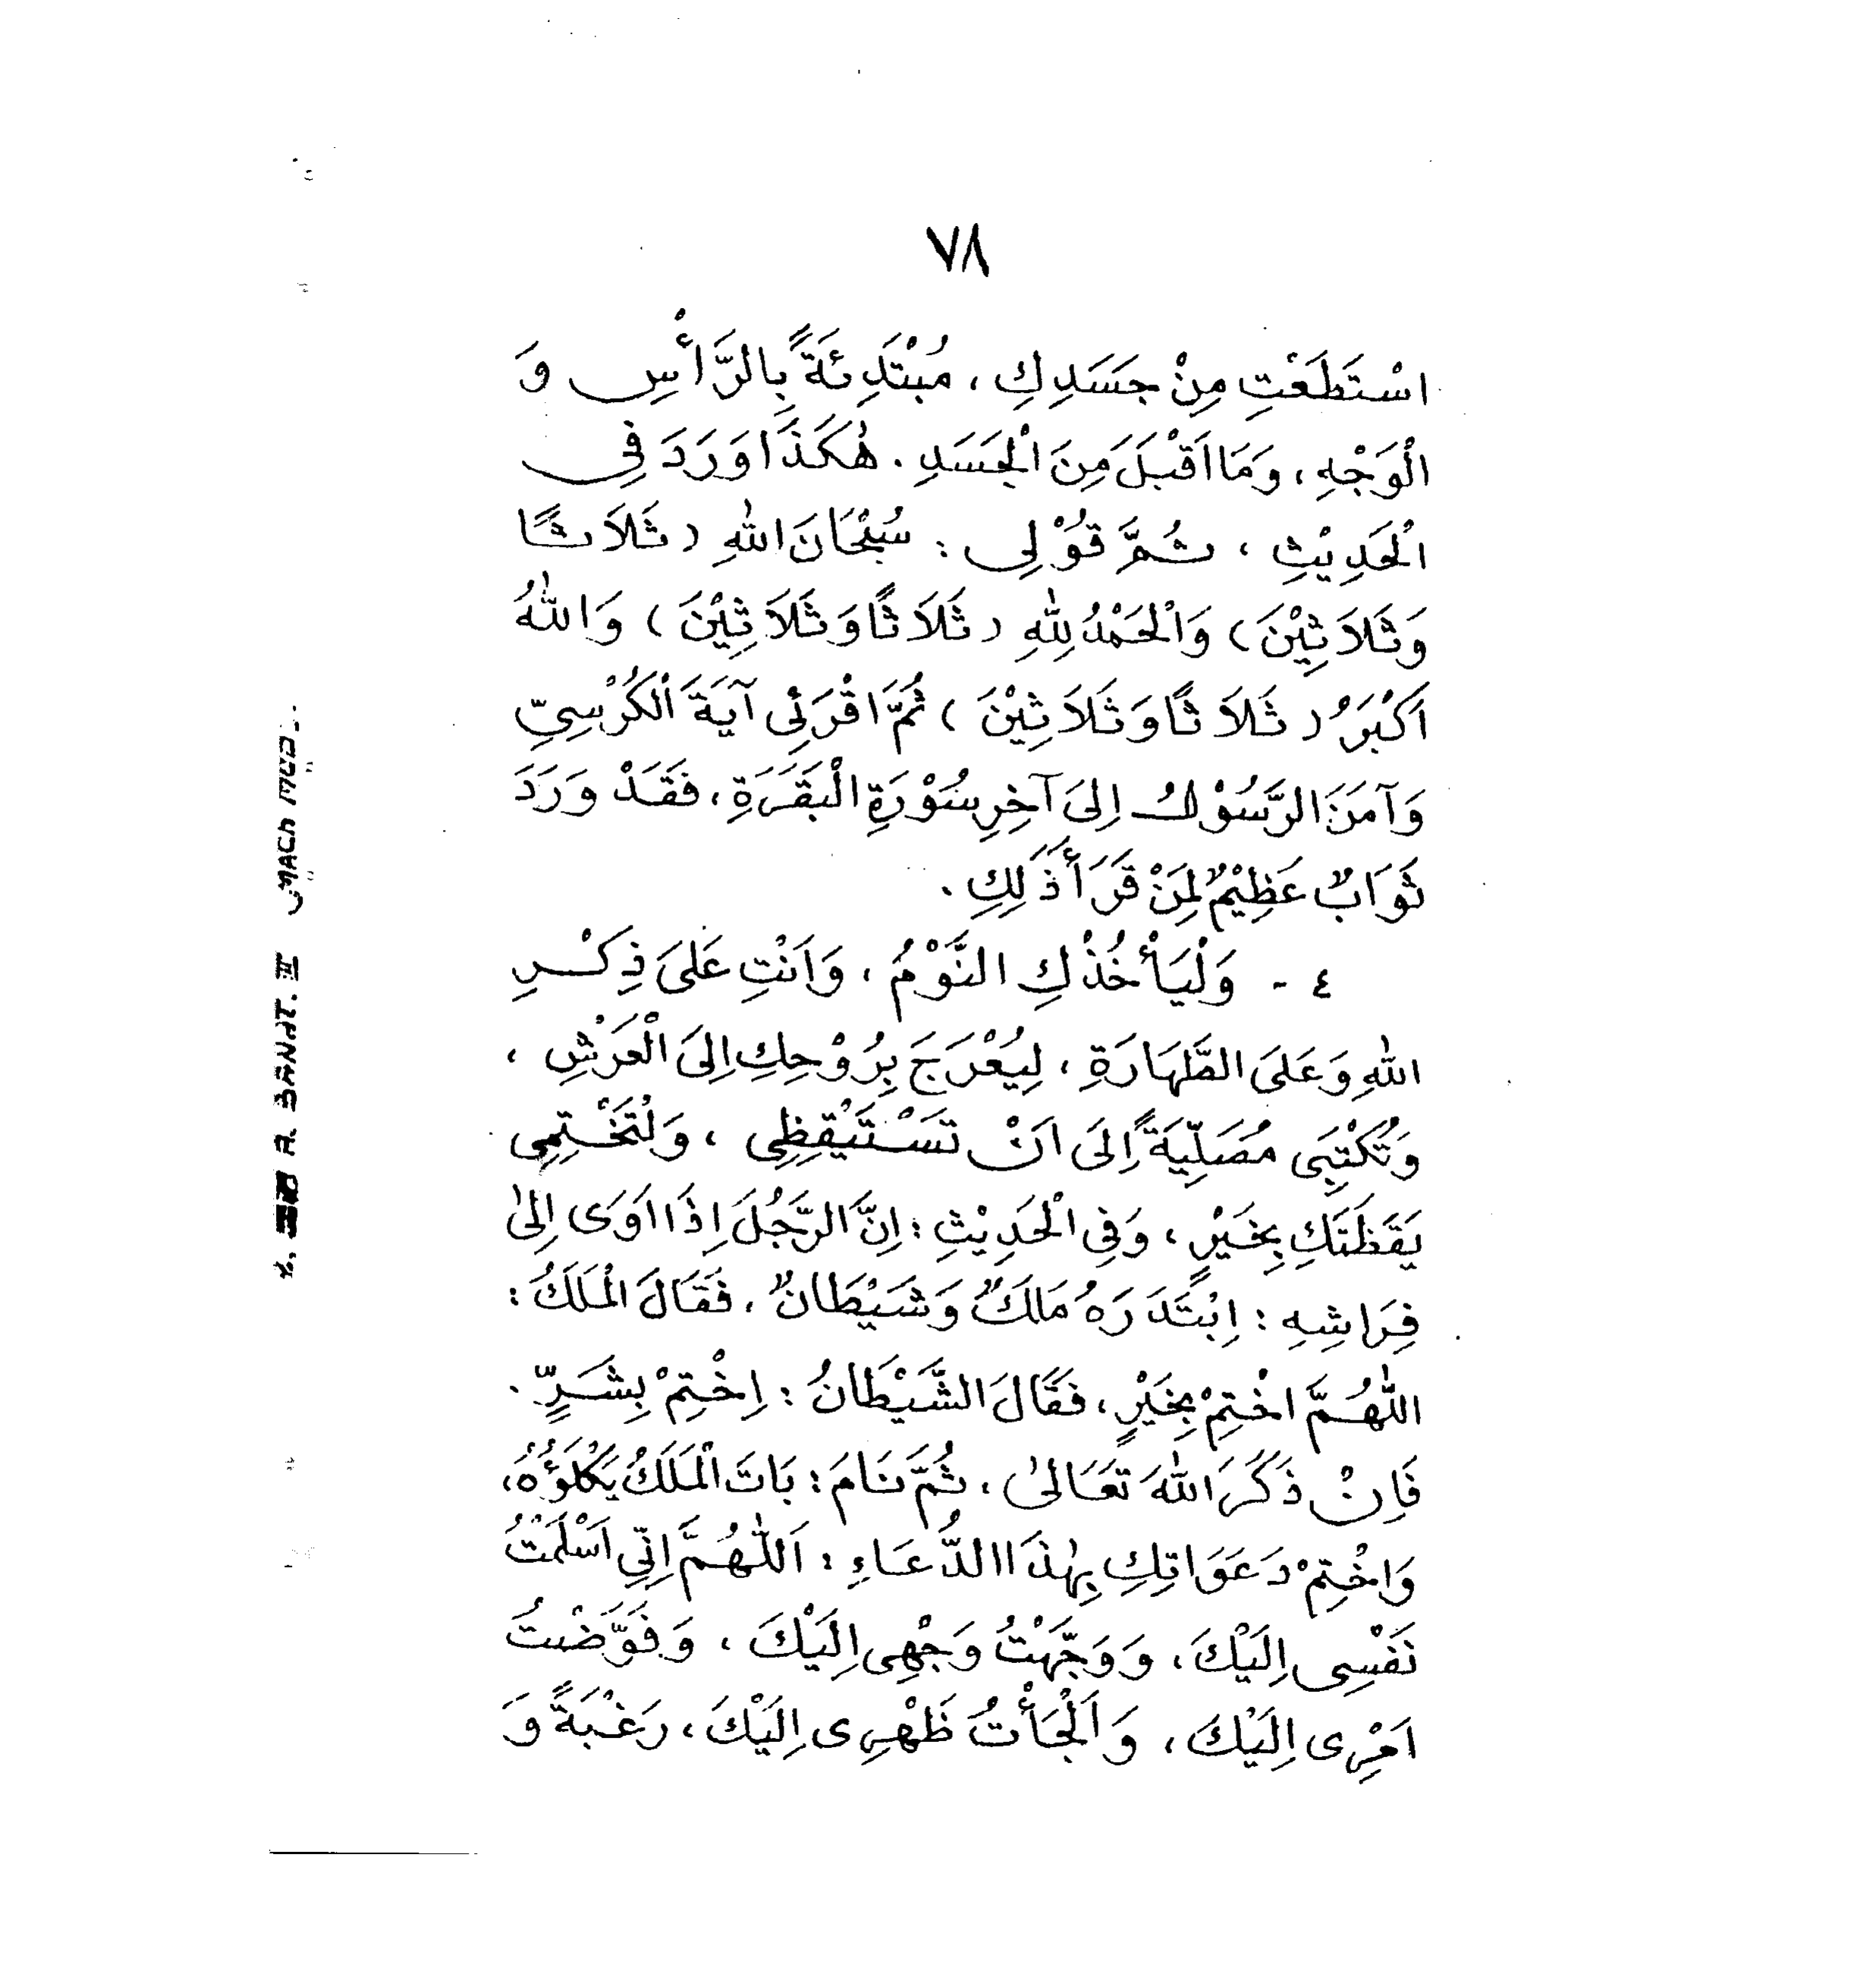 ٧٨
اسْتَطَعْتِ مِنْ جَسَدِكِ ، مُبْتَدِئَةً بِالرَّأْسِ وَ
الْوَجْهِ ، وَمَا اَقْبَلَ مِنَ الْجَسَدِ . هٰكَذَا وَرَدَ فِى
الْحَدِيْثِ ، ثُمَّ قُوْلِى : سُبْحَانَ اللهِ ( ثَلَاثًا
وَثَلَاثِيْنَ ) وَالْحَمْدُ لِلّٰهِ ( ثَلَاثًا وَثَلَاثِيْنَ ) وَاللّٰهُ
اَكْبَرُ ( ثَلَاثًا وَثَلَاثِيْنَ ) ثُمَّ اقْرَئِى آيَةَ الْكُرْسِيِّ
وَآمَنَ الرَّسُوْلُ اِلَى آخِرِ سُوْرَةِ الْبَقَرَةِ ، فَقَدْ وَرَدَ
ثَوَابٌ عَظِيْمٌ لِمَنْ قَرَأَ ذَلِكِ .
٤ - وَلْيَأْخُذْكِ النَّوْمُ ، وَاَنْتِ عَلَى ذِكْرِ
اللهِ وَعَلَى الطَّهَارَةِ ، لِيُعْرَجَ بِرُوْحِكِ اِلَى الْعَرْشِ ،
وَتُكْتَبِى مُصَلِّيَةً اِلَى اَنْ تَسْتَيْقِظِى ، وَلْتَخْتِمِى
يَقَظَتَكِ بِخَيْرٍ ، وَفِى الْحَدِيْثِ : اِنَّ الرَّجُلَ اِذَا اَوَى اِلىٰ
فِرَاشِهِ : اِبْتَدَرَهُ مَلَكٌ وَشَيْطَانٌ ، فَقَالَ الْمَلَكُ :
اللّٰهُمَّ اخْتِمْ بِخَيْرٍ ، فَقَالَ الشَّيْطَانُ : اِخْتِمْ بِشَرٍّ .
فَاِنْ ذَكَرَ اللهَ تَعَالىٰ ، ثُمَّ نَامَ : بَاتَ الْمَلَكُ يَكْلَؤُهُ ،
وَاخْتِمْ دَعَوَاتِكِ بِهٰذَا الدُّعَاءِ : اَللّٰهُمَّ اِنِّى اَسْلَمْتُ
نَفْسِى اِلَيْكَ ، وَوَجَّهْتُ وَجْهِى اِلَيْكَ ، وَفَوَّضْتُ
اَمْرِى اِلَيْكَ ، وَاَلْجَأْتُ ظَهْرِى اِلَيْكَ ، رَغْبَةً وَ
A. BANAT. III